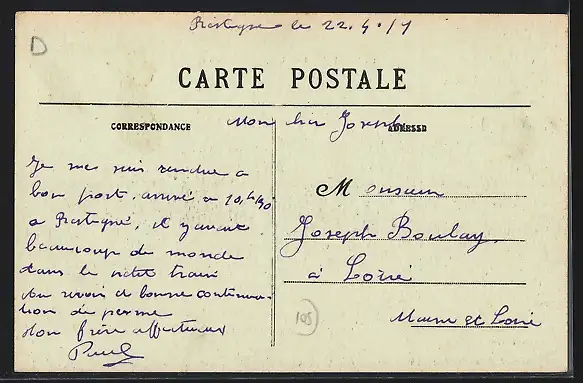 D
le 22.4.17
CARTE POSTALE
CORRESPONDANCE
ADRESSE
Mon cher Joseph
Je me suis rendue a
bon port. arrivé a 10h 1/2
a il y avait
beaucoup de monde
dans le petit train
Au revoir et bonne continua-
tion de perme
Ton frère affectueux
Paul
Monsieur
Joseph Boulay.
à Loiré
Maine et Loire
105